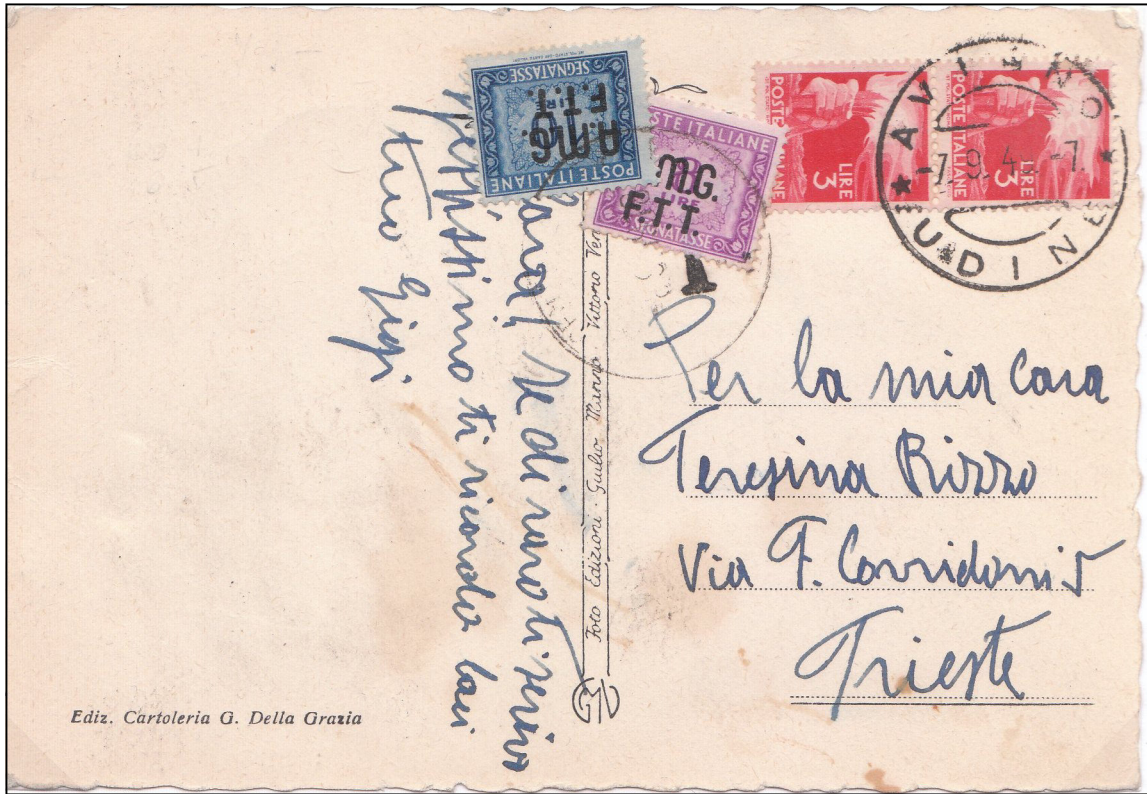 POSTE ITALIANE
SEGNATASSE
A.M.G.
F.T.T.
POSTE ITALIANE
LIRE
SEGNATASSE
M.G.
F.T.T.
POSTE ITALIANE
LIRE
3
POSTE ITALIANE
LIRE
3
AVIANO
UDINE
T
se di raro ti scrivo
spessissimo ti ricordo
tuo Gigi
Foto Edizioni - Giulio Marino Vittorio
Per la mia cara
Teresina Rizzo
Via F. Corridoni 5
Trieste
Ediz. Cartoleria G. Della Grazia